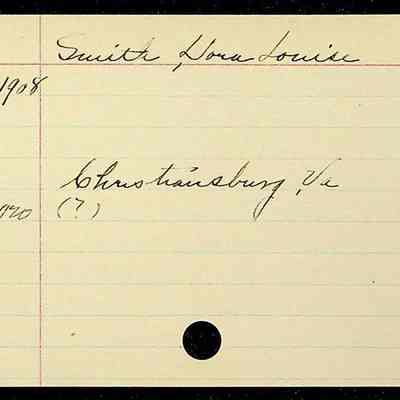 Smith, Dora Louise
1908
Christiansburg, Va
920 (?)